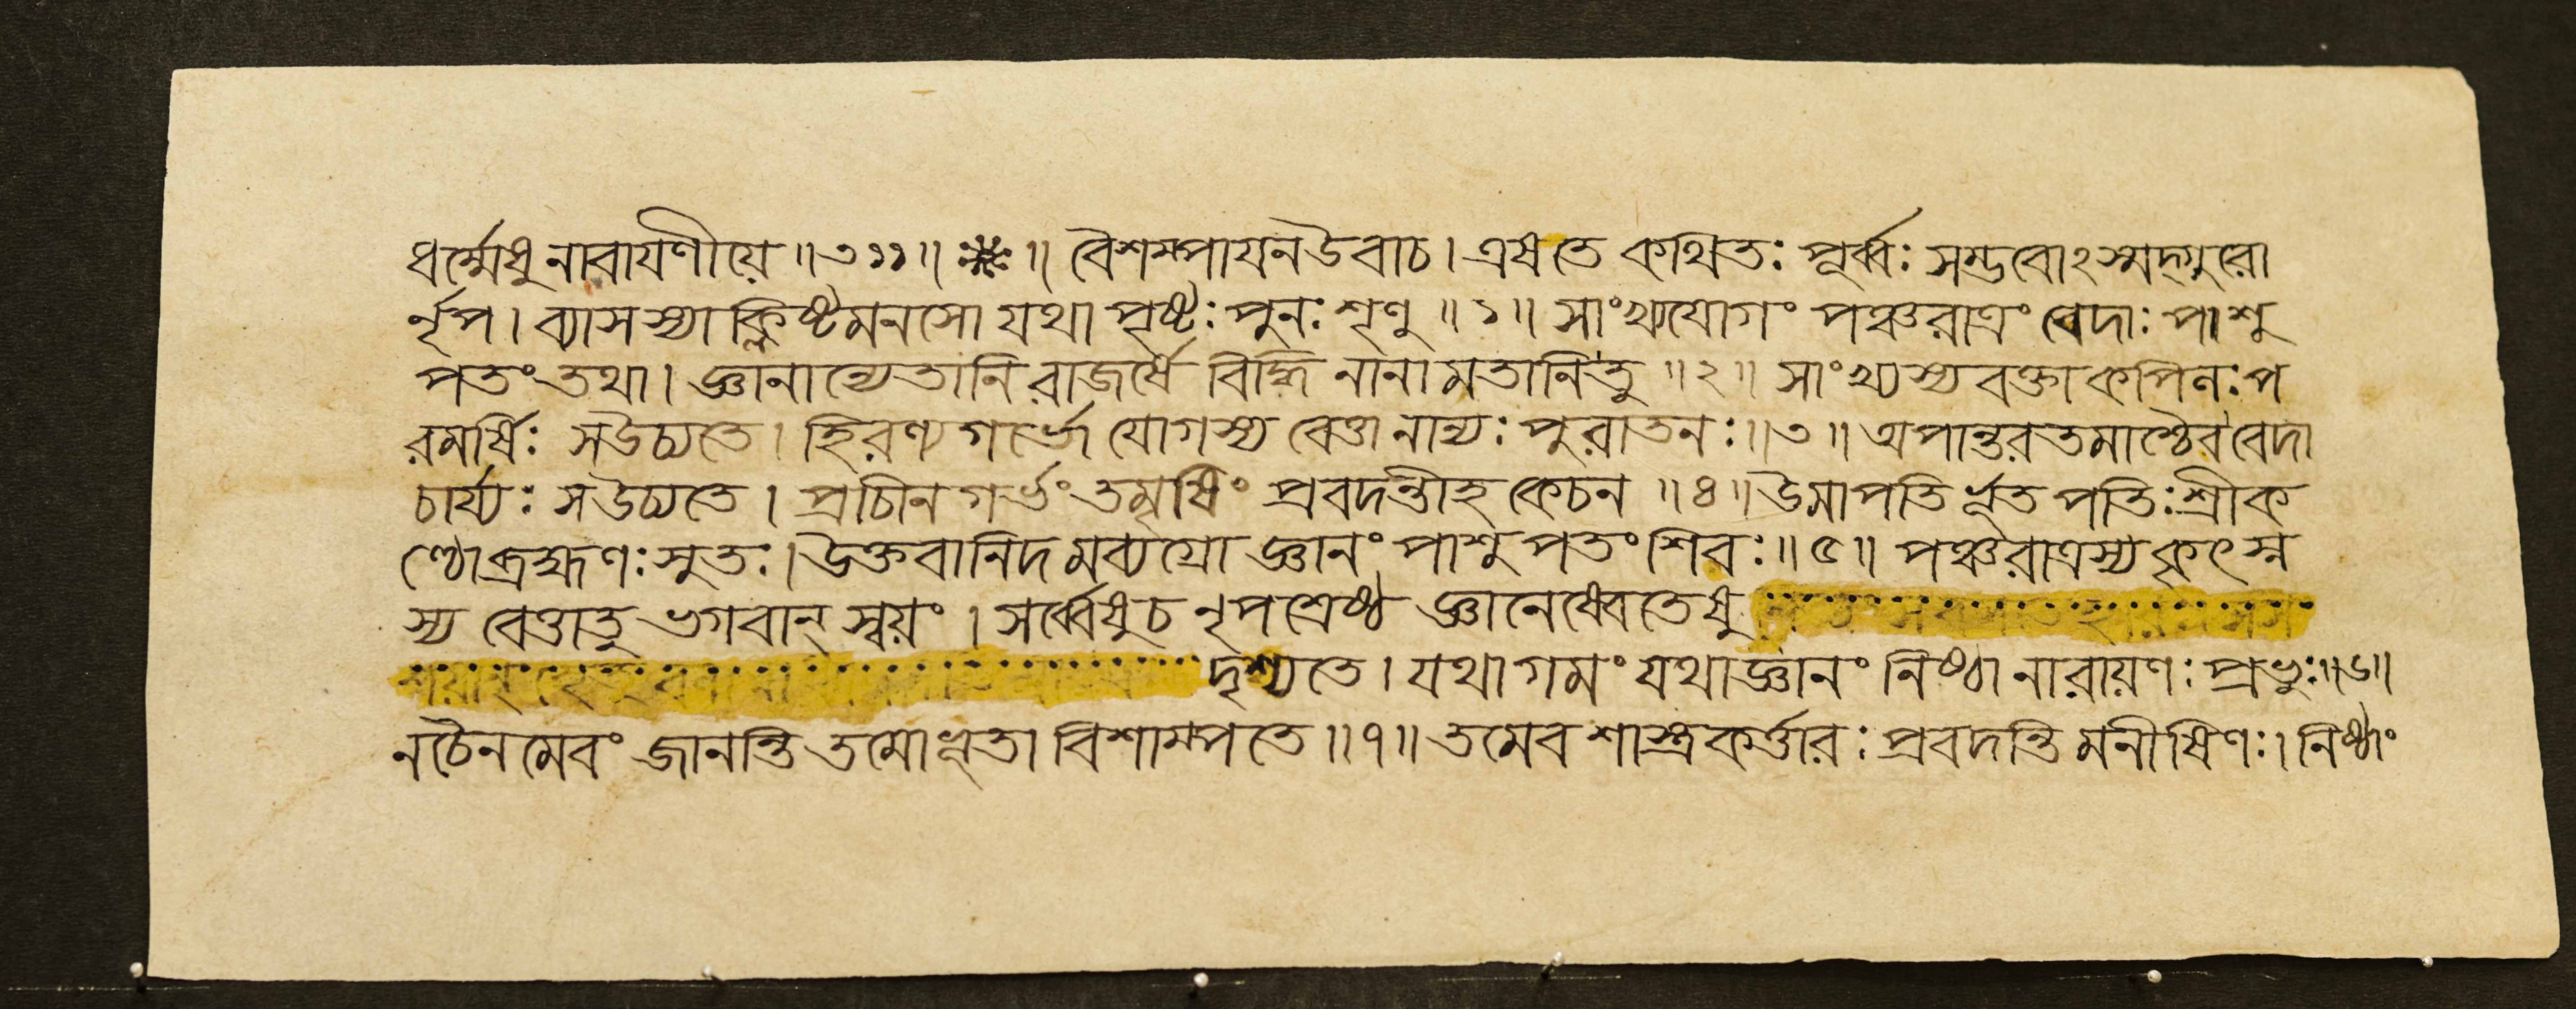 ধর্ম্মেষু নারাযণীয়ে ॥ ৩১১ ॥ ॥ বৈশম্পাযন উবাচ । এষতে কথিতঃ পূর্ব্বঃ সম্ভবোঽস্মদ্গুরো
র্নৃপ । ব্যাসস্যাক্লিষ্টমনসো যথা পৃষ্টঃ পুনঃ শৃণু ॥ ১ ॥ সাংখ্যযোগং পঞ্চরাত্রং বেদাঃ পাশু
পতং তথা । জ্ঞানান্যেতানি রাজর্ষে বিদ্ধি নানা মতানি তু ॥ ২ ॥ সাংখ্যস্য বক্তা কপিলঃ প
রমর্ষিঃ স উচ্যতে । হিরণ্যগর্ভো যোগস্য বেত্তা নান্যঃ পুরাতনঃ ॥ ৩ ॥ অপান্তরতমাশ্চৈব বেদা
চার্য্যঃ স উচ্যতে । প্রাচিন গর্ভং তমৃষিং প্রবদন্তীহ কেচন ॥ ৪ ॥ উমাপতির্ভূতপতিঃ শ্রীক
ণ্ঠো ব্রহ্মণঃ সুতঃ । উক্তবানিদমব্যগ্রো জ্ঞানং পাশুপতং শিবঃ ॥ ৫ ॥ পঞ্চরাত্রস্য কৃৎস্ন
স্য বেত্তা তু ভগবান্ স্বয়ং । সর্ব্বেষু চ নৃপশ্রেষ্ঠ জ্ঞানেষ্বেতেষু
দৃশ্যতে । যথাগমং যথাজ্ঞানং নিষ্ঠা নারায়ণঃ প্রভুঃ ॥ ৬ ॥
ন চৈনমেবং জানন্তি তমোভূতা বিশাম্পতে ॥ ৭ ॥ তমেব শাস্ত্রকর্ত্তারঃ প্রবদন্তি মনীষিণঃ । নিষ্ঠাং